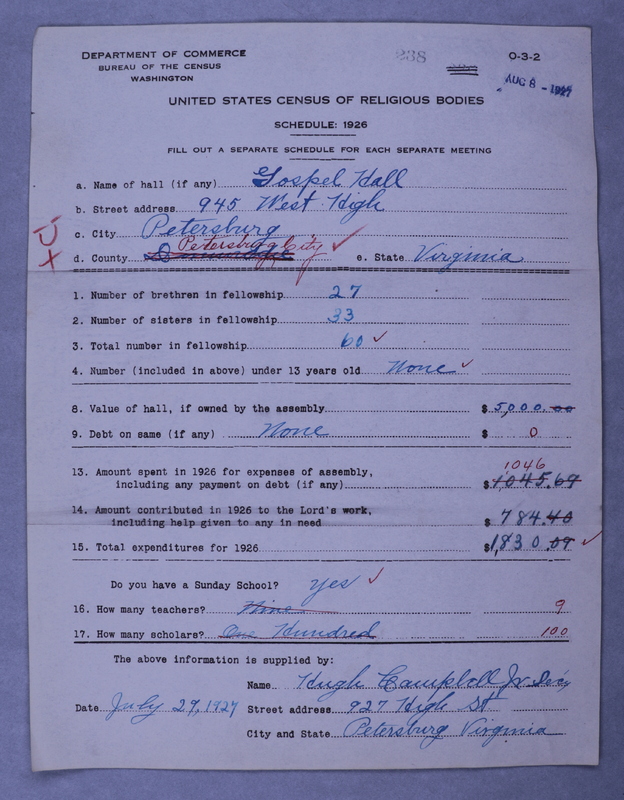 DEPARTMENT OF COMMERCE
BUREAU OF THE CENSUS
WASHINGTON
238
O-3-2
AUG 8 - 1927
UNITED STATES CENSUS OF RELIGIOUS BODIES
SCHEDULE: 1926
FILL OUT A SEPARATE SCHEDULE FOR EACH SEPARATE MEETING
a. Name of hall (if any) Gospel Hall
b. Street address 945 West High
c. City Petersburg
d. County Petersburg City e. State Virginia
1. Number of brethren in fellowship 27
2. Number of sisters in fellowship 33
3. Total number in fellowship 60
4. Number (included in above) under 13 years old None
8. Value of hall, if owned by the assembly $5,000.00
9. Debt on same (if any) None $ 0
1046
13. Amount spent in 1926 for expenses of assembly,
including any payment on debt (if any) $1045.69
14. Amount contributed in 1926 to the Lord's work,
including help given to any in need $784.40
15. Total expenditures for 1926 $1,830.09
Do you have a Sunday School? yes
16. How many teachers? Nine 9
17. How many scholars? One Hundred 100
The above information is supplied by:
Name Hugh Campbell Jr
Date July 29, 1927 Street address 927 High St
City and State Petersburg Virginia